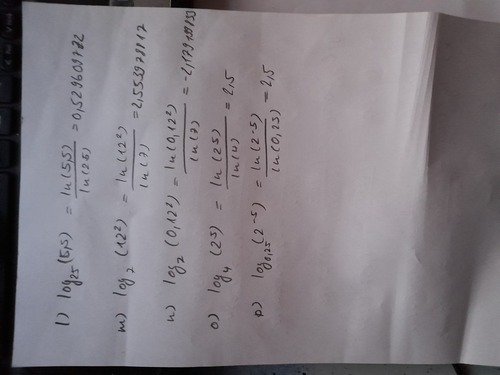 l) log₂₅(5,5) = ln(5,5)/ln(25) = 0,529609782
m) log₇(12²) = ln(12²)/ln(7) = 2,553978817
n) log₇(0,12²) = ln(0,12²)/ln(7) = -2,179199833
o) log₄(2⁵) = ln(2⁵)/ln(4) = 2,5
p) log₀,₂₅(2⁻⁵) = ln(2⁻⁵)/ln(0,25) = 2,5